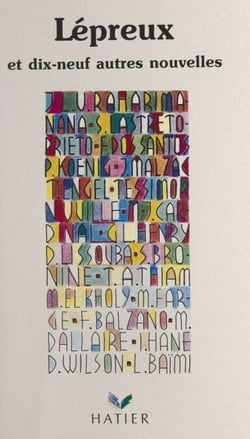 Lépreux
et dix-neuf autres nouvelles
J.L.V.RAHARIMA-
NANA.S.LASTRETO-
PRIETO.F.DOS SANTOS
P.KOENIG.MALZAC
T.INGEL.TESSIMOP
NUVILLE.M.J.CAR-
DNA.G.L.HENRY
D.ISSOUBA.S.BRO-
NINE.T.A.THIAM
M.ELKHOLY.M.FAR-
GE.F.BALZANO.M.
DALLAIRE.I.HANE
D.WILSON.L.BAÏMI
HATIER